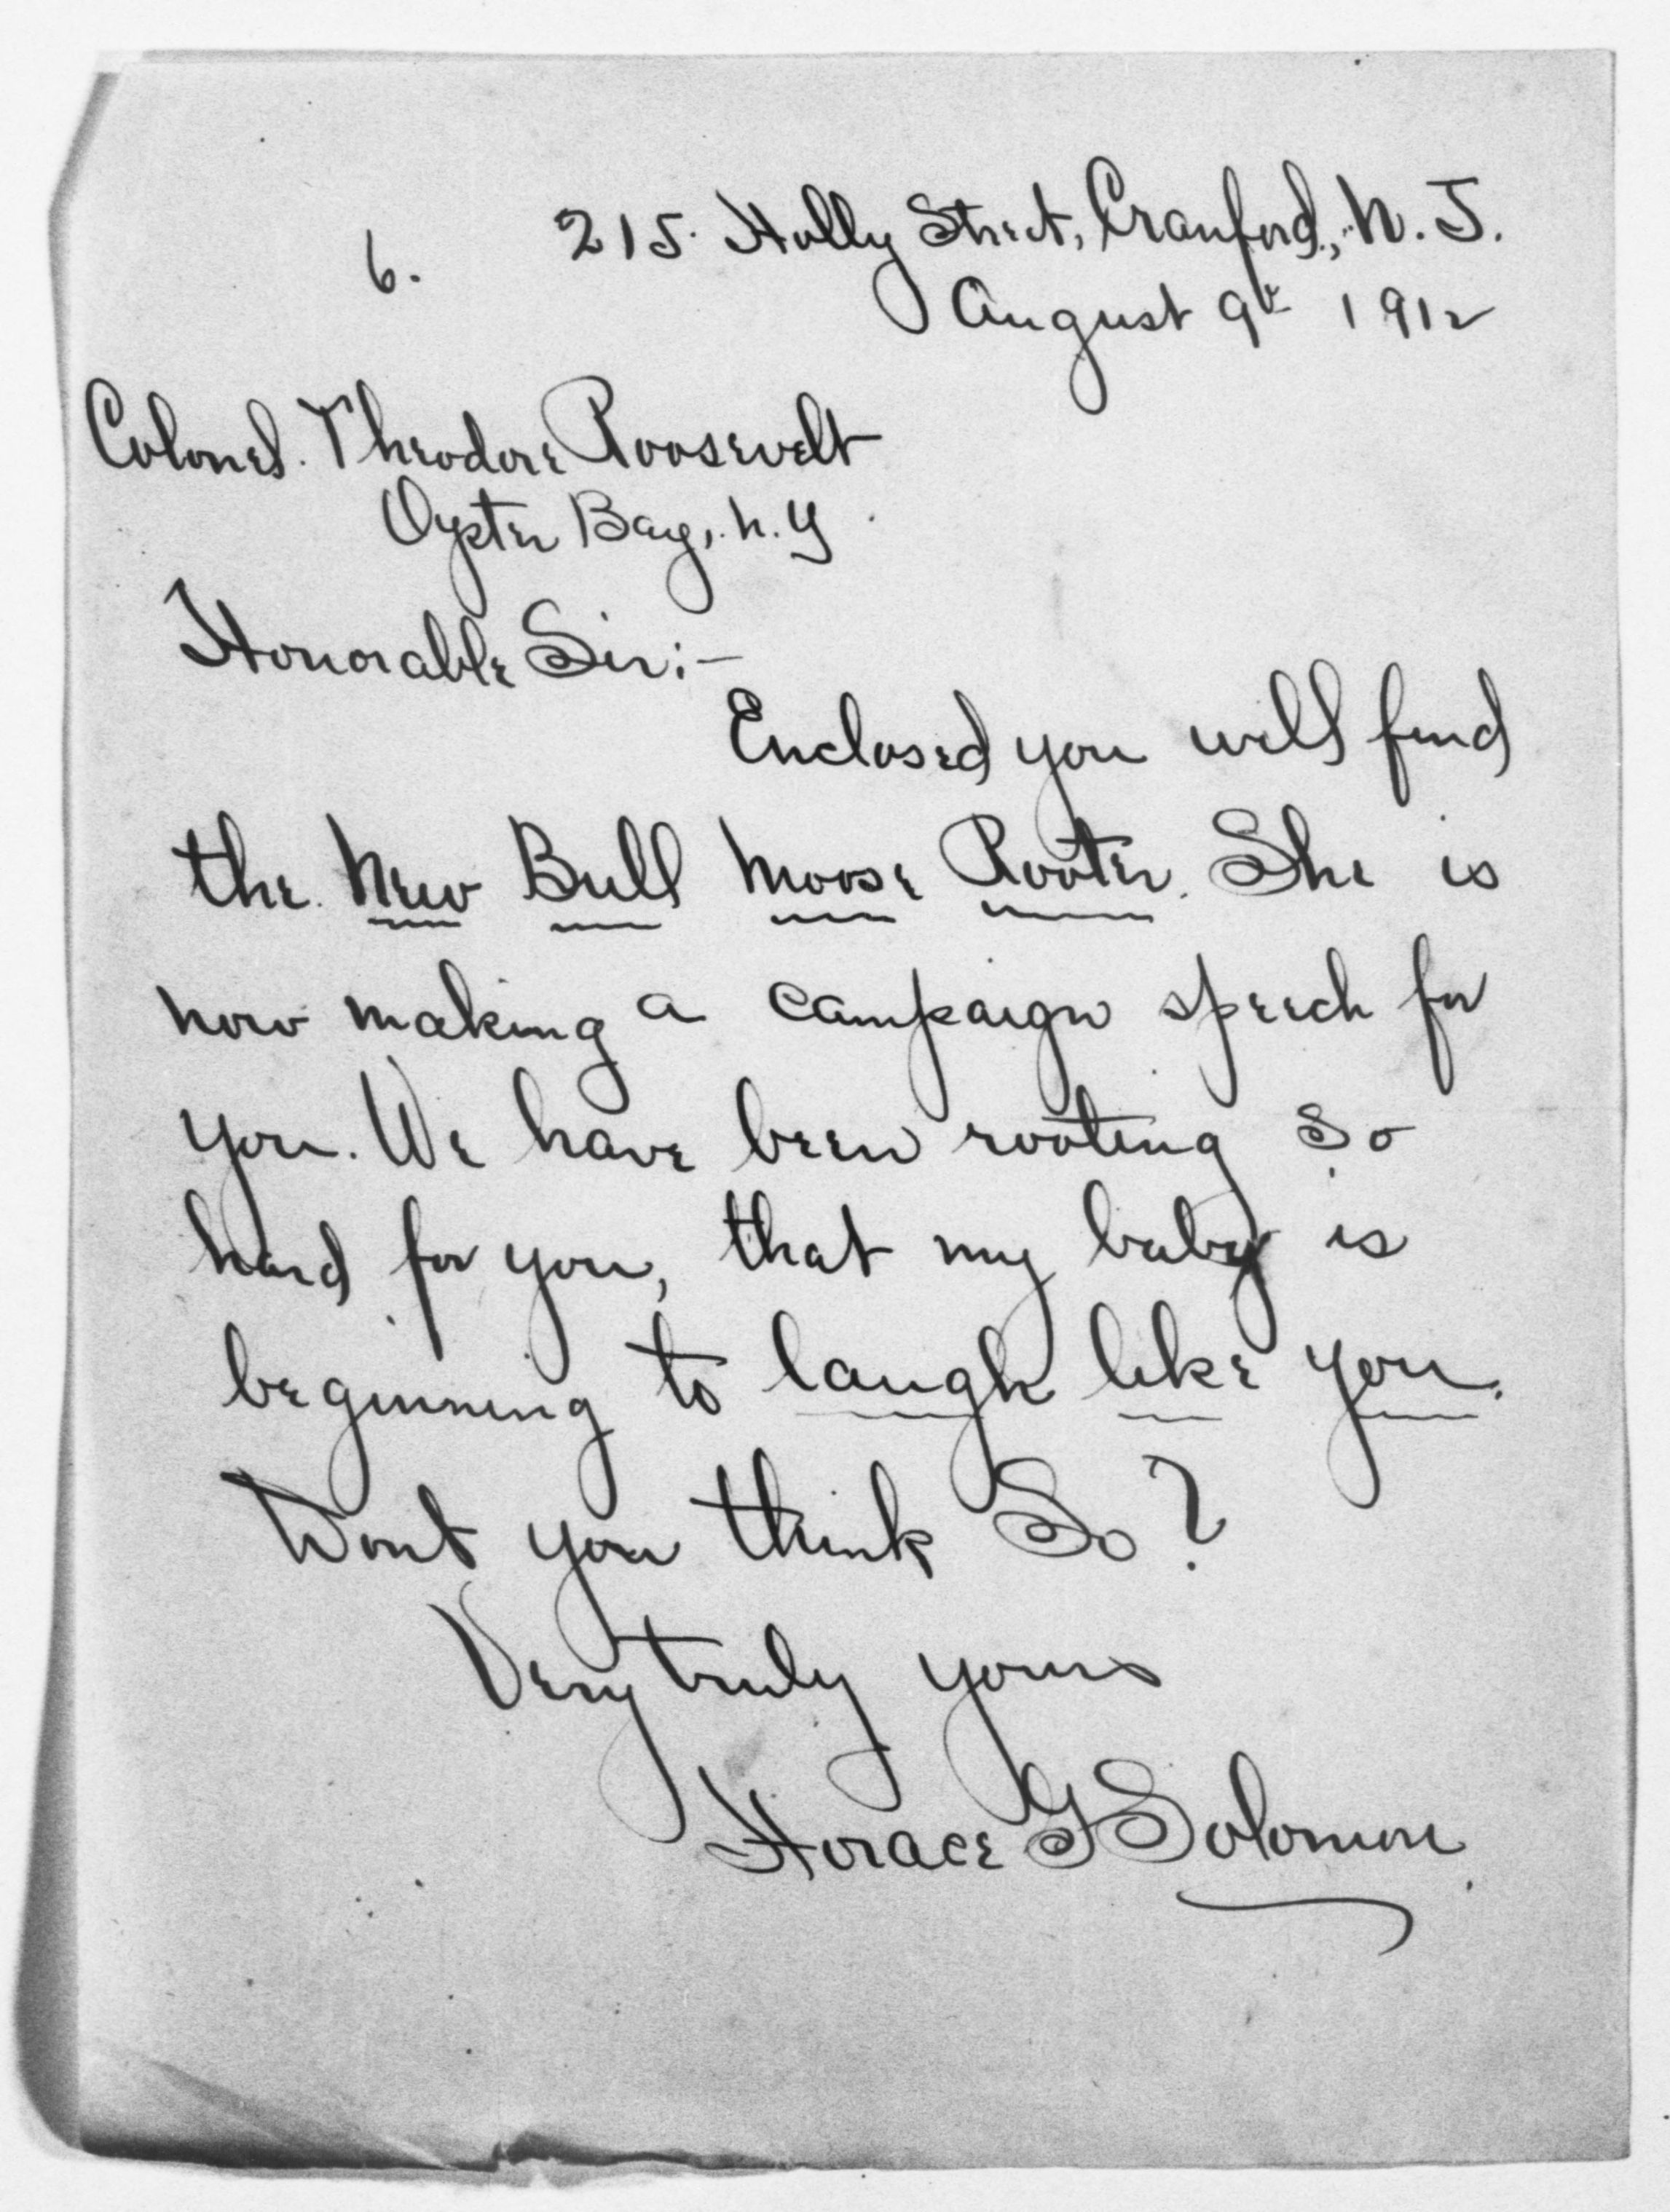 6.
215. Holly Street, Cranford, N. J.
August 9th 1912
Colonel. Theodore Roosevelt
Oyster Bay, N. Y.
Honorable Sir:-
Enclosed you will find
the New Bull Moose Rooter. She is
now making a campaign speech for
you. We have been rooting so
hard for you, that my baby is
beginning to laugh like you.
Dont you think So?
Very truly yours
Horace G Solomon